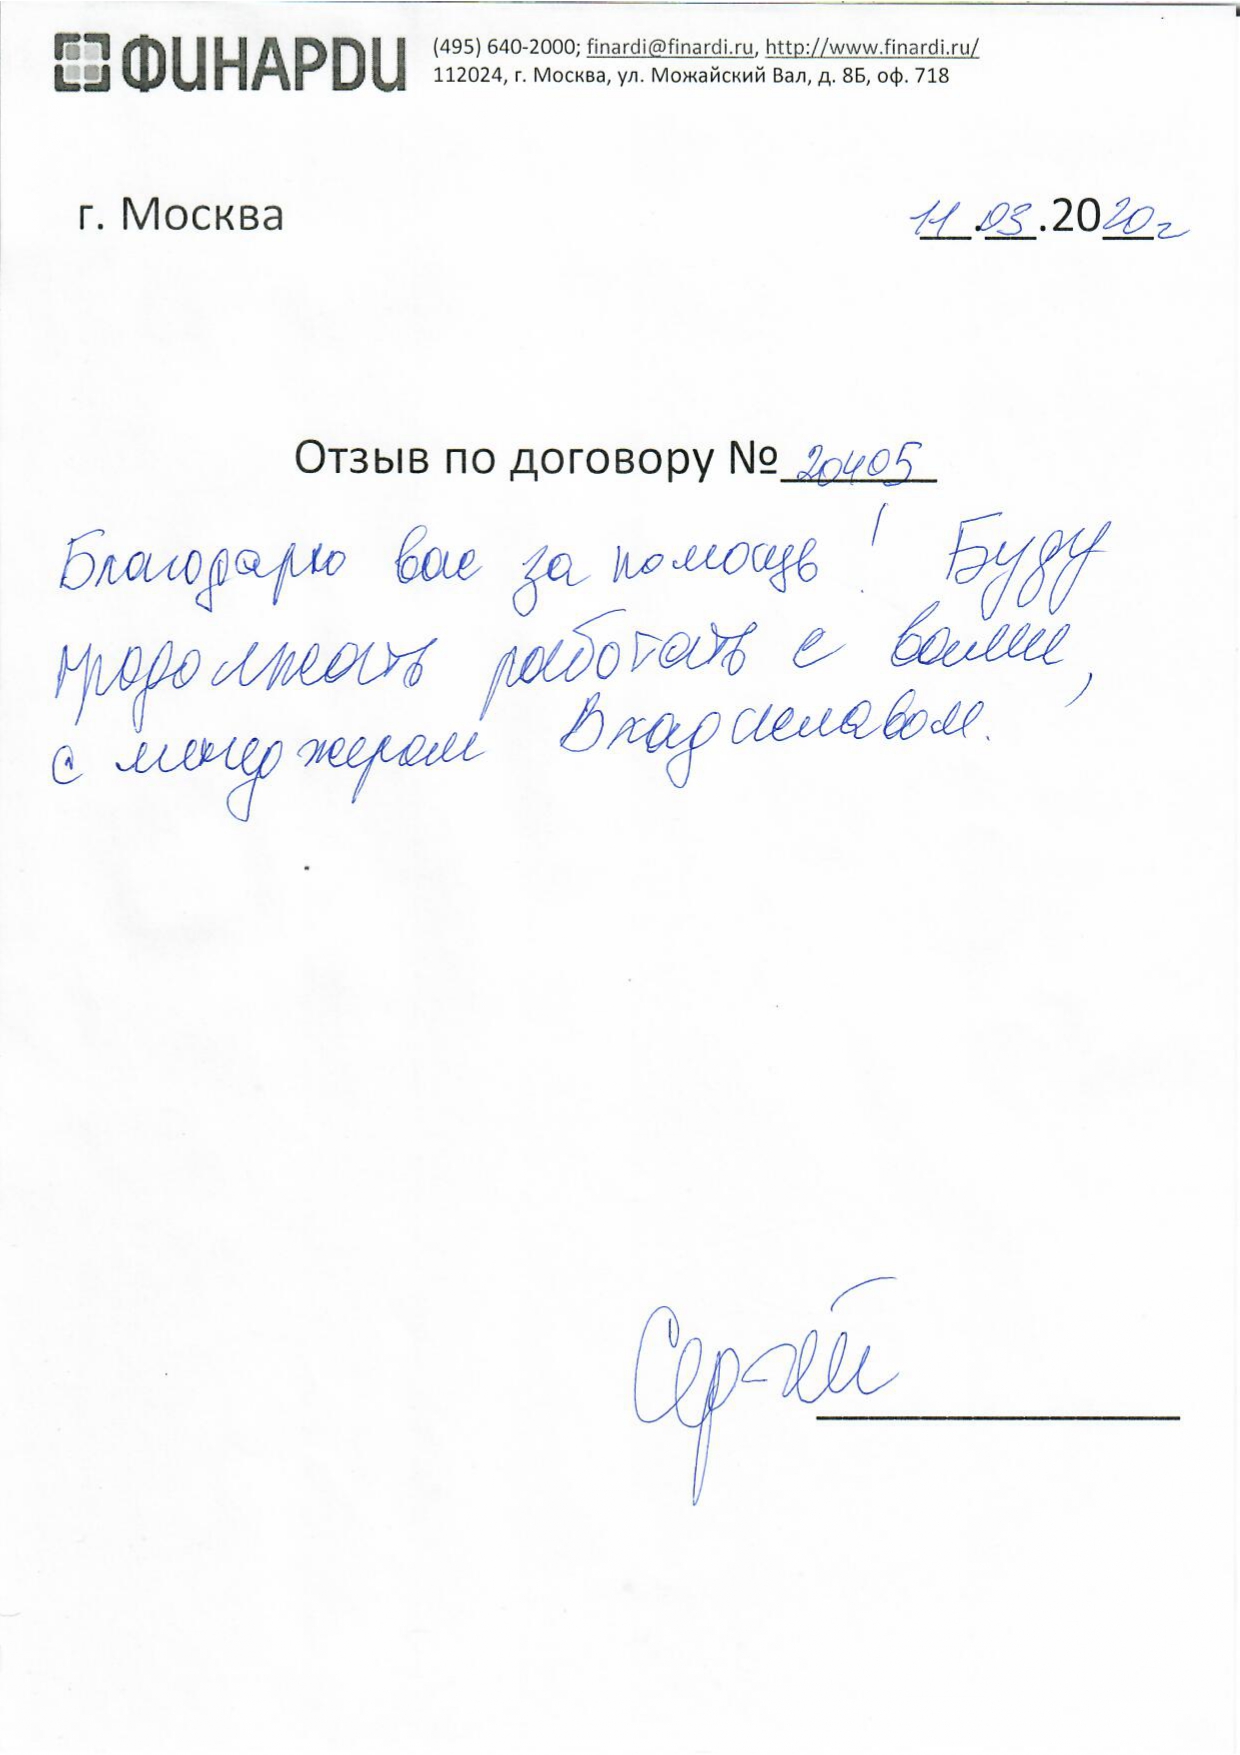 ФИНАРДИ
(495) 640-2000; finardi@finardi.ru, http://www.finardi.ru/
112024, г. Москва, ул. Можайский Вал, д. 8Б, оф. 718
г. Москва
11.03.2020г
Отзыв по договору № 20405
Благодарю вас за помощь! Буду
продолжать работать с вами,
с менеджером Владиславом.
Сергей